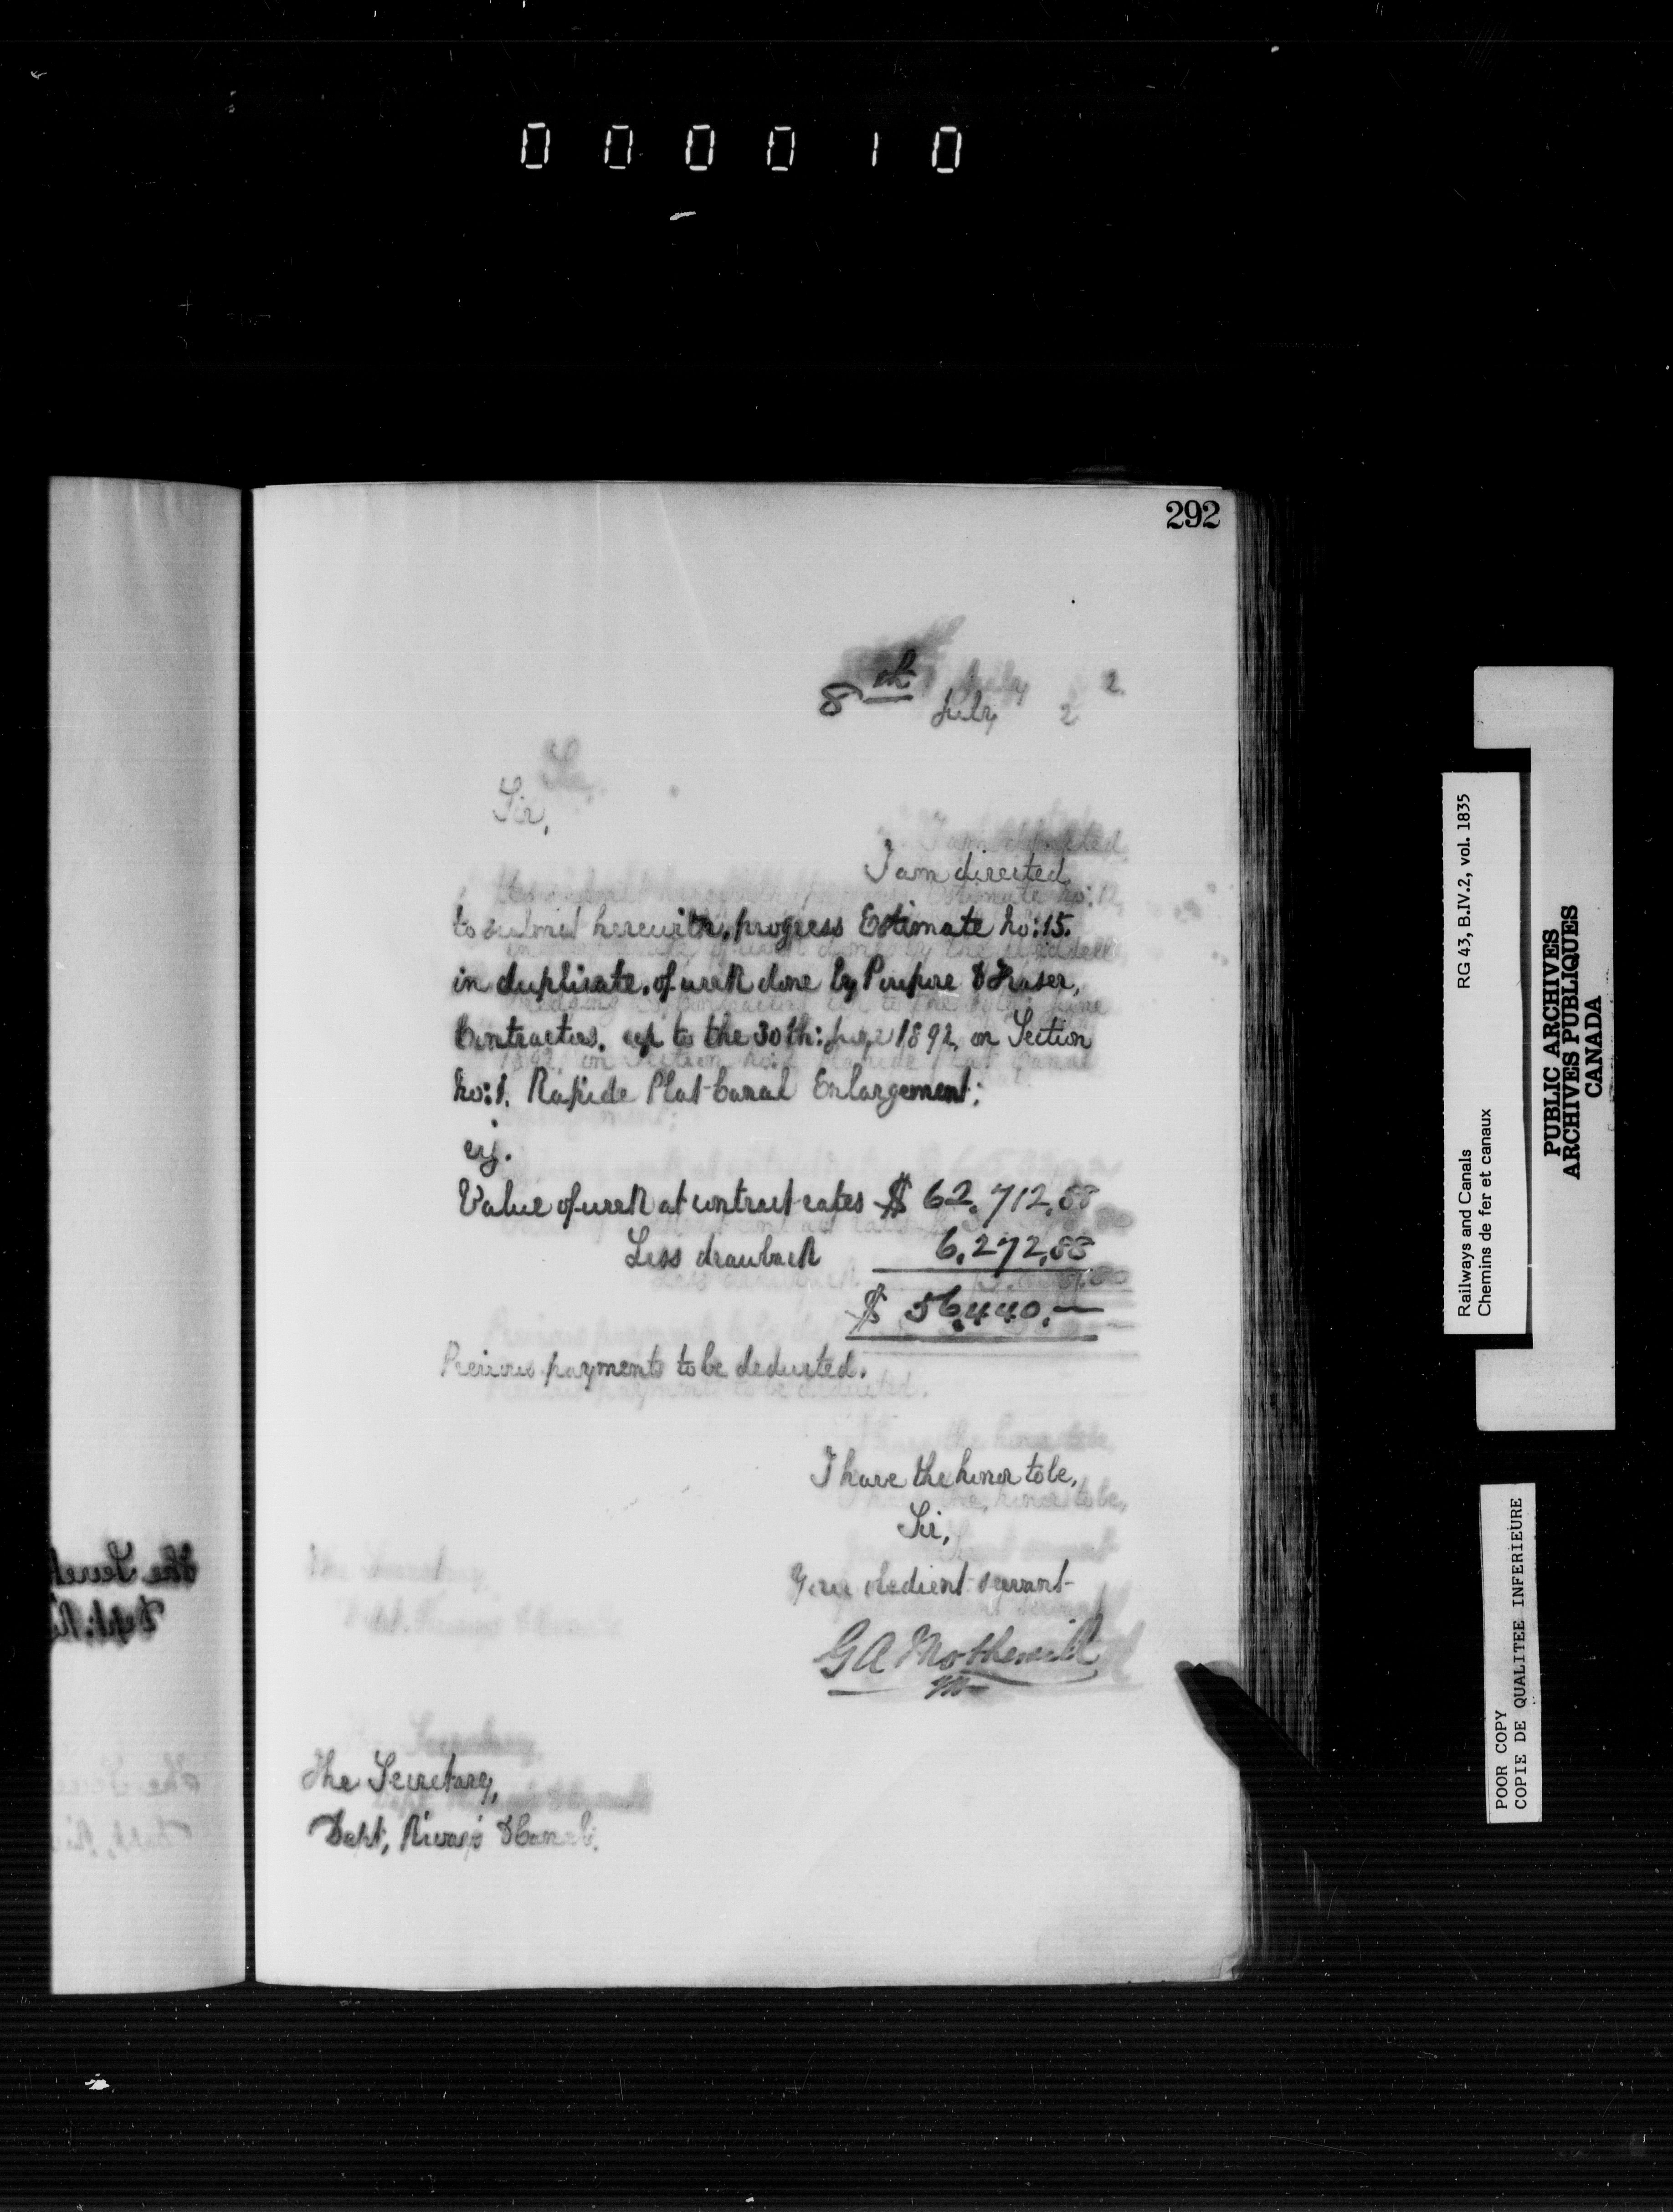 000010
292
8th July 2
Sir,
I am directed
to submit herewith, progress Estimate No: 15.
in duplicate, of work done by Poupore & Fraser,
Contractors, up to the 30th: June 1892, on Section
No: 1. Rapide Plat Canal Enlargement;
viz.
Value of work at contract rates $ 62,712,88
Less drawback 6,272,88
$ 56,440.—
Previous payments to be deducted.
I have the honor to be,
Sir,
Your obedient servant
G A Mothersill
The Secretary,
Dept, Riways & Canals.
Railways and Canals RG 43, B.IV.2, vol. 1835
Chemins de fer et canaux
PUBLIC ARCHIVES
ARCHIVES PUBLIQUES
CANADA
POOR COPY
COPIE DE QUALITEE INFERIEURE